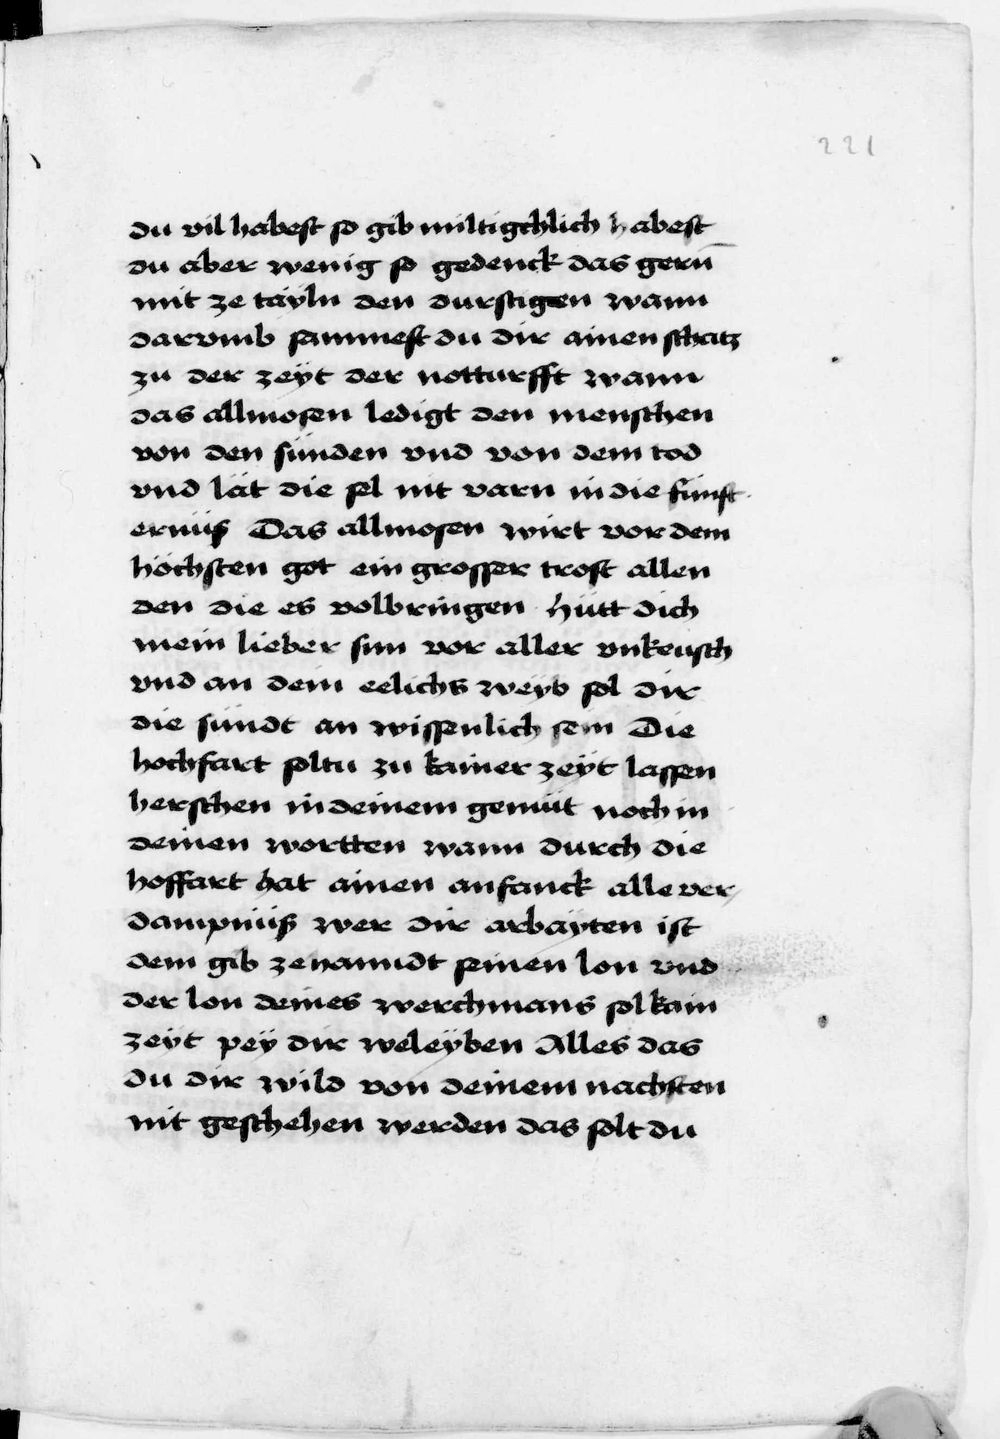 221
du vil habest so gib miltigchlich habest
du aber wenig so gedenck das gern̄
mit ze tayln den durstigen wann
darvmb sammest du dir ainen schatz
zu der zeÿt der notturfft wann
das allmosen ledigt den menschen
von den sünden vnd von dem tod
vnd lät die sel nit varn in die finst
ernüß Das allmosen wirt vor dem
höchsten got ein grosser trost allen
den die es volbringen Hütt dich
mein lieber sun vor aller vnkeusch
vnd an dein eelichs weyb sol dir
die sündt an wissenlich sein Die
hochfart soltu zu kainer zeÿt lassen
herschen in deinem gemüt noch in
deinen wortten wann durch die
hoffart hat ainen anfanck alle ver
dampnüß wer dir arbayten ist
dem gib zehanndt seinen lon vnd
der lon deines werchmans sol kain
zeÿt peÿ dir weleÿben Alles das
du dir wild von deinem nachsten
nit geschehen werden das solt du